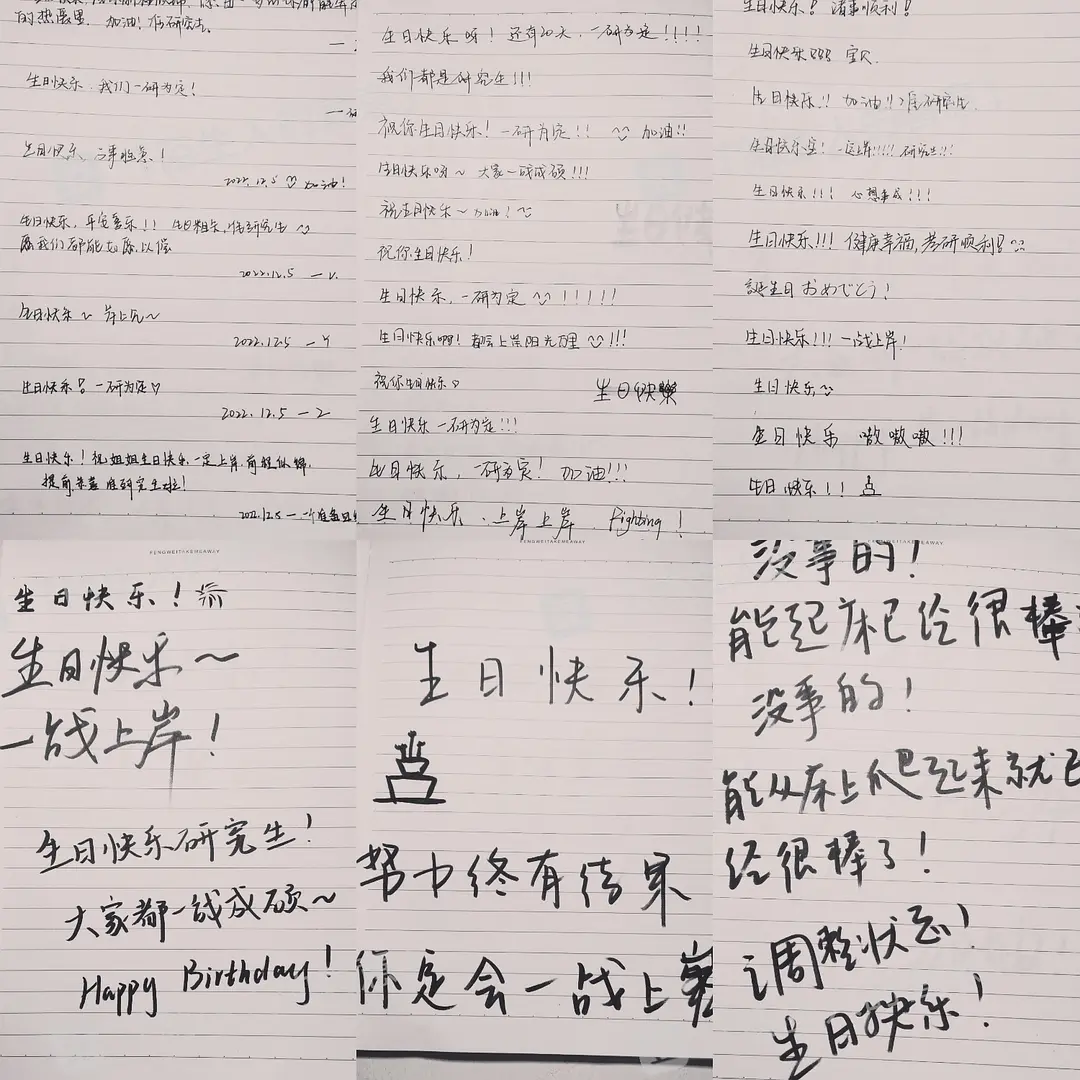 的热爱里 加油!准研究生
生日快乐,我们一研为定!
生日快乐、 !
2022.12.5 加油!
生日快乐,平安喜乐!! 生日快乐,准研究生
愿我们都能如愿以偿
2022.12.5
生日快乐~ 岸上见~
2022.12.5 一Y
生日快乐! 一研为定♡
2022.12.5 一2
生日快乐!祝姐姐生日快乐,一定上岸,前程似锦,
提前恭喜准研究生啦!
2022.12.5 一个准
生日快乐呀!还有20天,一研为定!!!!
我们都是研究生!!!
祝你生日快乐!一研为定!! 加油!!
生日快乐呦~ 大家一战成硕!!!
祝生日快乐~ 加油!
祝你生日快乐!
生日快乐,一研为定 !!!!!!
生日快乐啊!都会上岸阳光万里 !!!
祝你生日快乐
生日快樂
生日快乐 一研为定!!!
生日快乐,一研为定!加油!!!
生日快乐、上岸上岸、Fighting!
生日快乐! 诸事顺利!
生日快乐!!! 宝贝
生日快乐!! 加油!!准研究生
生日快乐宝! 一定上岸!!!!! 研究生!!!
生日快乐!!! 心想事成!!!
生日快乐!!! 健康幸福,考研顺利!
誕生日おめでとう!
生日快乐!!! 一战上岸!
生日快乐
生日快乐 嗷嗷嗷!!!
生日快乐!!
FENGWEITAKEMEAWAY
生日快乐!
生日快乐~
一战上岸!
生日快乐研究生!
大家都一战成硕~
Happy Birthday!
AKEMEAWAY
生日快乐!
努力终有结果
你定会一战上岸
没事的!
能起床已经很棒
没事的!
能从床上爬起来就已
经很棒了!
调整状态!
生日快乐!